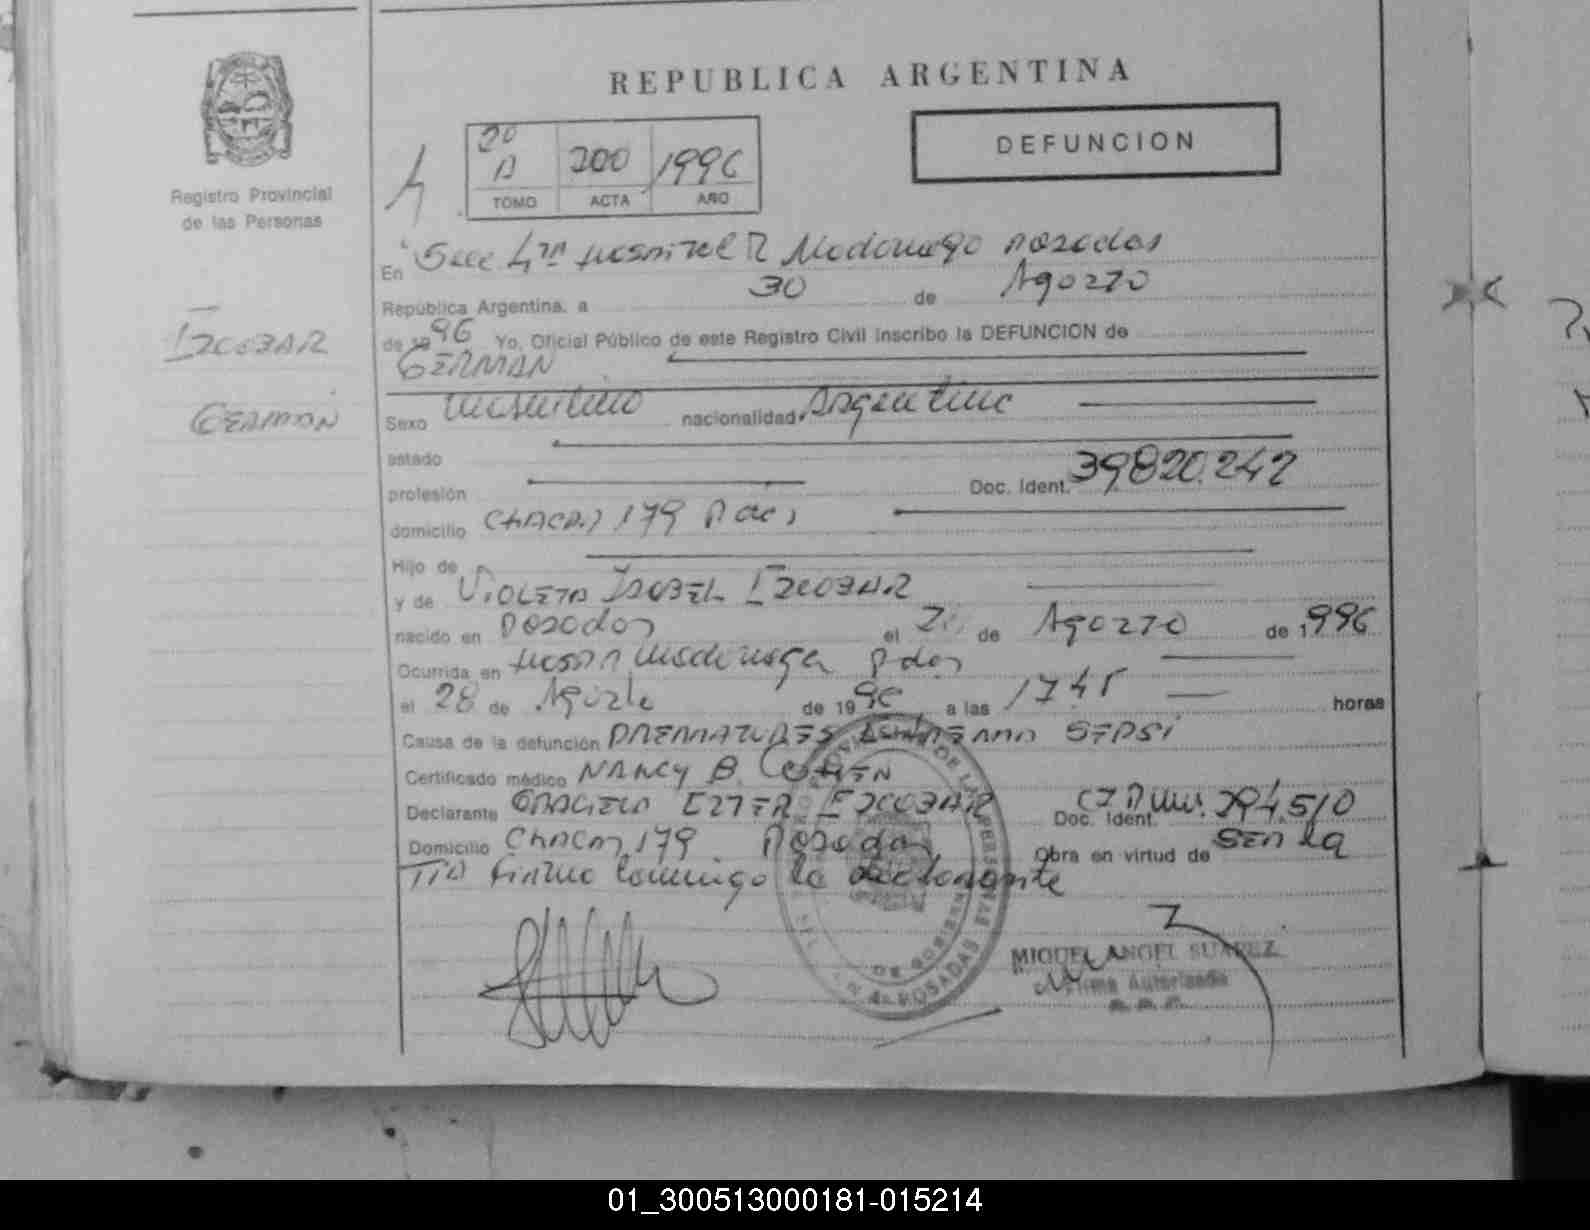 REPUBLICA ARGENTINA
DEFUNCION
Registro Provincial
de las Personas
2º
A 200 1996
TOMO ACTA AÑO
En Secc 4ta Hospital R Madariaga Posadas
República Argentina, a 30 de Agosto
de 1996 Yo, Oficial Público de este Registro Civil inscribo la DEFUNCION de
GERMAN
ESCOBAR
GERMAN
Sexo masculino nacionalidad Argentina
estado
profesión Doc. Ident. 39.820.242
domicilio CHACRA 179 Pdas
Hijo de
y de VIOLETA ISABEL ESCOBAR
nacido en Posadas el de Agosto de 1996
Ocurrida en Hosp R Madariaga Pdas
el 28 de Agosto de 1996 a las 17 45 horas
Causa de la defunción SEPSI
Certificado médico NANCY B. COHEN
Declarante GRACIELA ESTER ESCOBAR Doc. Ident. 394.510
Domicilio CHACRA 179 Posadas Obra en virtud de SER LA
TIA firma conmigo la declarante
MIGUEL ANGEL SUAREZ
Firma Autorizada
01_300513000181-015214